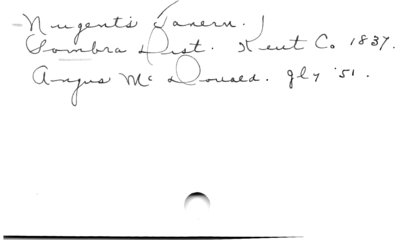 Nugent's Tavern.
Sombra Dist. Kent Co 1837.
Angus Mc Donald. gly '51.